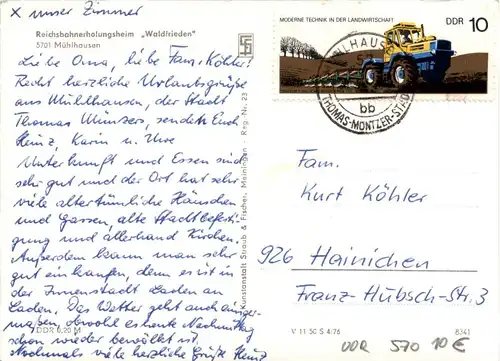 x unser Zimmer
Reichsbahnerholungsheim „Waldfrieden"
5701 Mühlhausen
Liebe Oma, liebe Fam. Köhler!
Recht herzliche Urlaubsgrüße
aus Mühlhausen, der Stadt
Thomas Münzers, sendete Euch
Heinz, Karin u. Uwe
Unterkunft und Essen sind
sehr gut und der Ort hat sehr
viele altertümliche Häuschen
und Gassen, alte Stadtbefesti-
gung und allerhand Kirchen.
Außerdem kann man sehr
gut einkaufen, denn es ist in
der Innenstadt Laden an
Laden. Das Wetter geht auch einiger-
maßen, obwohl es heute Nachmittag
schon wieder bewölkt ist.
Nochmals viele herzliche Grüße Heinz
DDR 0,20 M
Kunstanstalt Straub & Fischer, Meiningen - Reg.-Nr. 23
MODERNE TECHNIK IN DER LANDWIRTSCHAFT
DDR 10
bb
THOMAS-MÜNTZER-STADT
Fam.
Kurt Köhler
926 Hainichen
Franz-Hübsch-Str. 3
V 11 50 S 4/76
8341
DDR 570 10 €